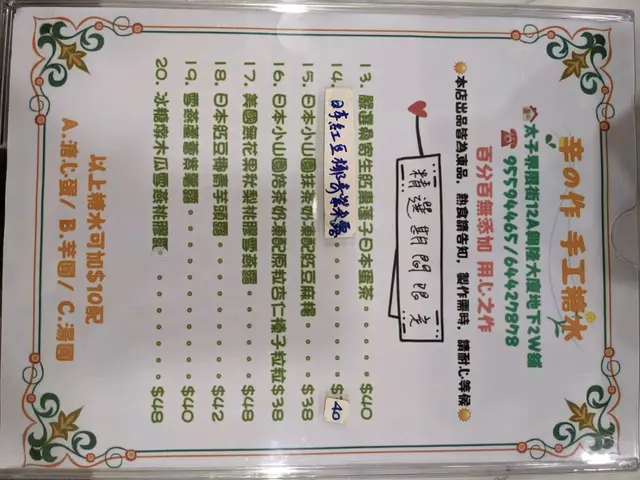 芋の作 手工糖水
太子界限街12A興隆大廈地下2W舖
95594465/64427878
百分百無添加 用心之作
本店出品皆為凍品，熱食請告知，製作需時，請耐心等候
精選期間限定
13. 嚴選桑寄生旺連蓮子日本蛋茶......$40
14. 日季紅豆椰奇紫米露......$40
15. 日本小山園抹茶奶凍配旺豆麻糬...$38
16. 日本小山園焙茶奶凍配原粒杏仁榛子粒粒$38
17. 美國無花果秋梨桃膠雪燕露....$48
18. 日本旺豆椰雪芋頭露......$42
19. 雪燕蓮
......$40
20. 冰糖燉木瓜雪燕桃膠露......$48
以上糖水可加$10配
A.溏心蛋/ B.芋圓/ C.湯圓